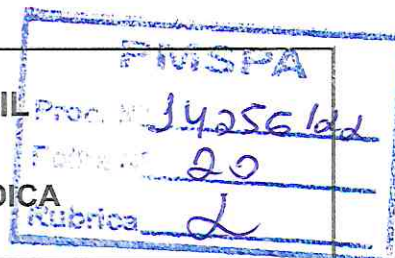 PMSPA
IL
Proc. Nº 14256/22
Folha Nº 20
DICA
Rubrica